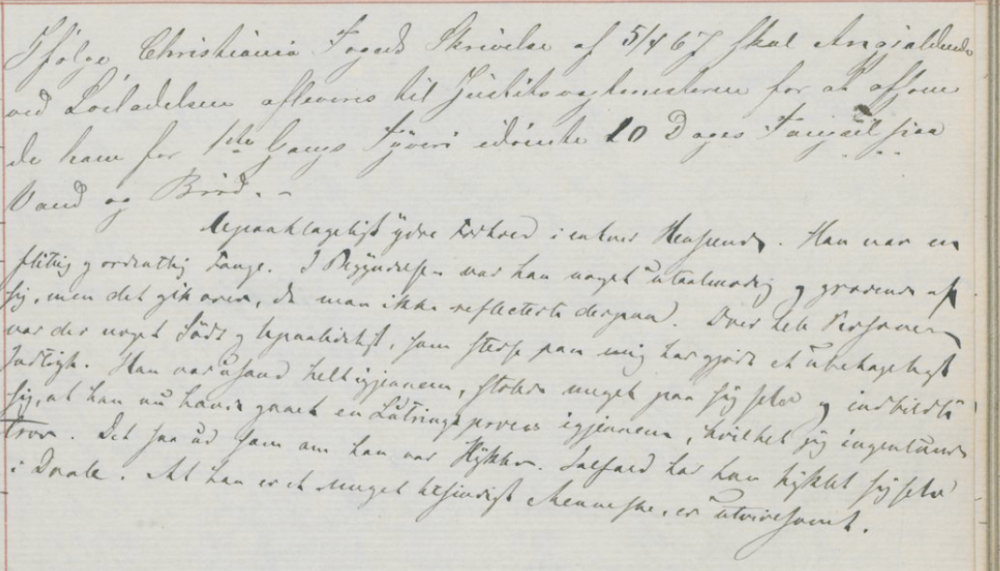 Ifølge Christiania Fogeds Skrivelse af 5/4 67 skal Angjældende
ved Løsladelsen afleveres til Justitsvagtmesteren for at afsone
de ham for 1ste Gangs Tyveri idømte 10 Dages Fængsel paa
Vand og Brød. -
Upaaklageligt ydre Forhold i enhver Henseende. Han var en
flittig og ordentlig Fange. I Begyndelsen var han noget utaalmodig og
sig, men det gik over, da man ikke reflecterte derpaa. Over hele Personen
var der noget Sødt og upaalideligt, som strax paa mig har gjort et ubehageligt
Indtryk. Han var usand helt igjennem, stolede meget paa sig selv og indbildte
sig, at han nu havde gaaet en Lutringsproces igjennem, hvilket jeg ingenlunde
troer. Det saa ud som om han var Hykler. Ialfald har han hyklet sig selv
i Dvale. At han er et meget Menneske, er utvivlsomt.